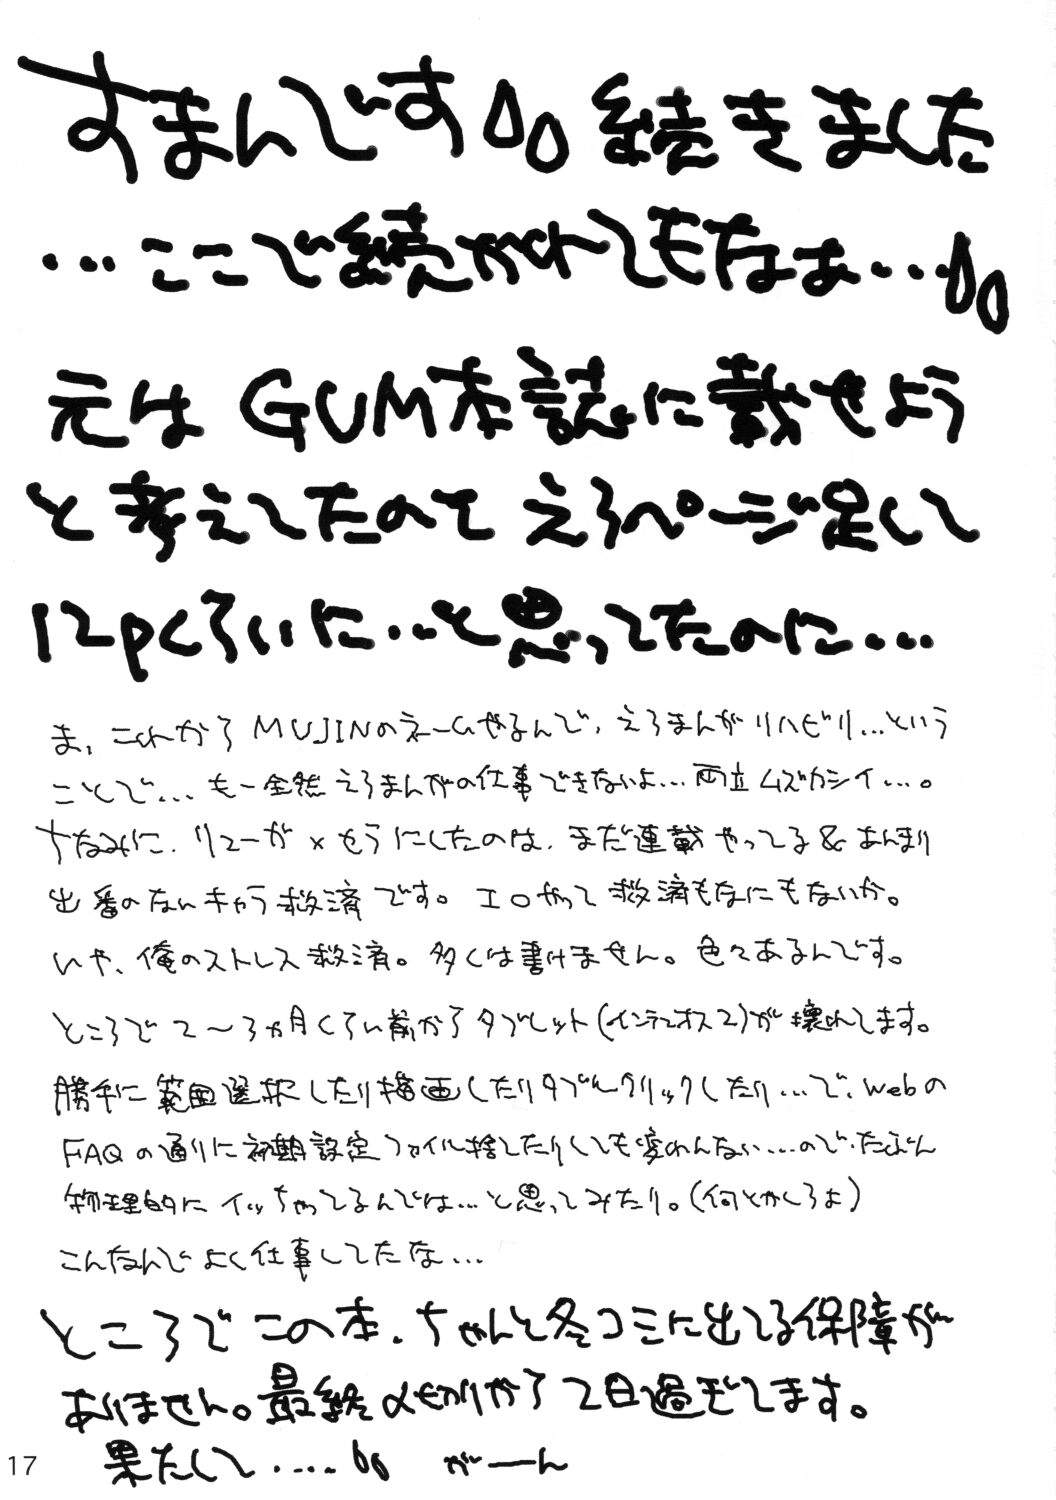 すまんです 続きました
…ここで続かれてもなぁ…
元は GUM本誌に載せよう
と考えてたので えろページ足して
12pくらいに…と思ってたのに…
ま、これから MUJINのネームやるんで、えろまんがリハビリ…という
ことで… も一全然えろまんがの仕事できないよ…両立ムズカシイ…。
ちなみに、リューが×せらにしたのは、まだ連載やってる&あんまり
出番のないキャラ救済です。エロやって救済もなにもないか。
いや、俺のストレス救済。多くは書けません。色々あるんです。
ところで 2〜3ヵ月くらい前からタブレット(インテュオス2)が壊れてます。
勝手に範囲選択したり描画したりダブルクリックしたり…で、Webの
FAQの通りに初期設定ファイル捨てたりしても変わんない…ので、たぶん
物理的にイッちゃってるんでは…と思ってみたり。(何とかしろよ)
こんなんでよく仕事してたな…
ところでこの本、ちゃんと冬コミに出てる保障が
ありません。最終〆切りから2日過ぎてます。
果たして…… がーーん
17